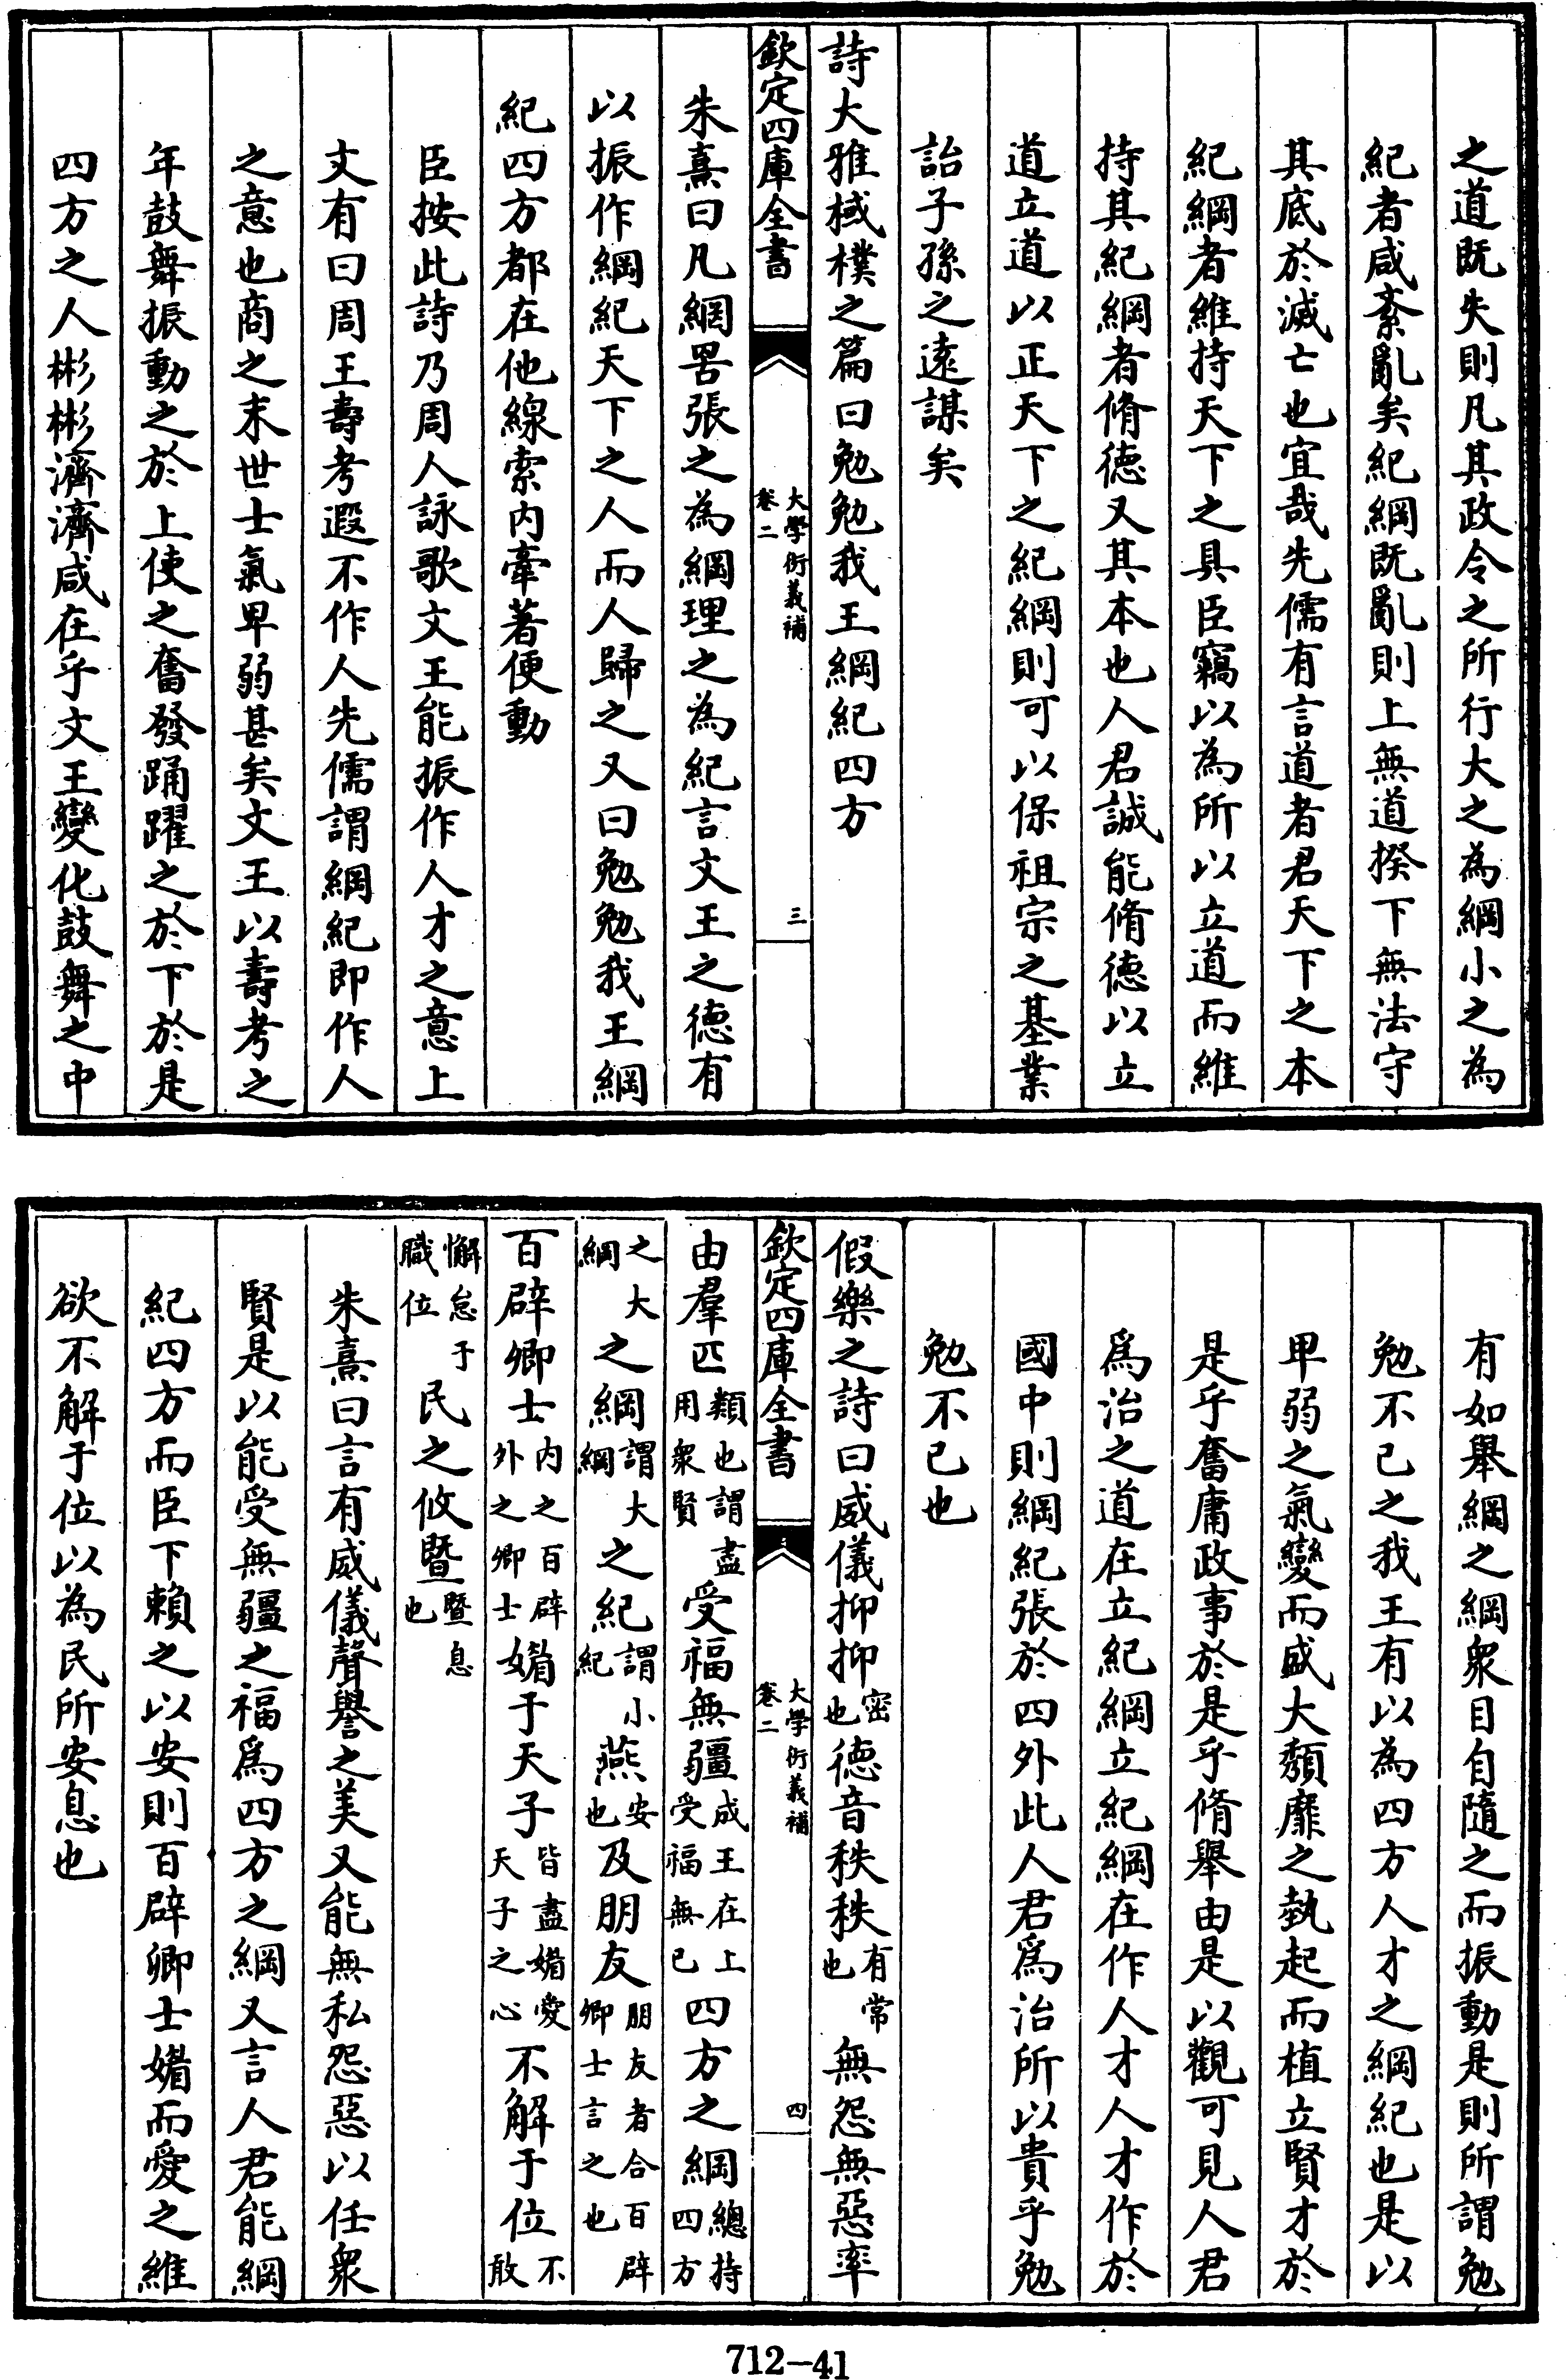 之道既失則凡其政令之所行大之為綱小之為
紀者咸紊亂矣紀綱既亂則上無道揆下無法守
其底於滅亡也宜哉先儒有言道者君天下之本
紀綱者維持天下之具臣竊以為所以立道而維
持其紀綱者脩德又其本也人君誠能脩德以立
道立道以正天下之紀綱則可以保祖宗之基業
詒子孫之遠謀矣
詩大雅棫樸之篇曰勉勉我王綱紀四方
欽定四庫全書 大學衍義補 卷二 三
朱熹曰凡網罟張之為綱理之為紀言文王之德有
以振作綱紀天下之人而人歸之又曰勉勉我王綱
紀四方都在他線索內牽著便動
臣按此詩乃周人詠歌文王能振作人才之意上
文有曰周王壽考遐不作人先儒謂綱紀即作人
之意也商之末世士氣卑弱甚矣文王以壽考之
年鼓舞振動之於上使之奮發踊躍之於下於是
四方之人彬彬濟濟咸在乎文王變化鼓舞之中
有如舉網之綱衆目自隨之而振動是則所謂勉
勉不已之我王有以為四方人才之綱紀也是以
卑弱之氣變而盛大頽靡之埶起而植立賢才於
是乎奮庸政事於是乎脩舉由是以觀可見人君
爲治之道在立紀綱立紀綱在作人才人才作於
國中則綱紀張於四外此人君爲治所以貴乎勉
勉不已也
假樂之詩曰威儀抑抑密也德音秩秩有常也無怨無惡率
欽定四庫全書 大學衍義補 卷二 四
由羣匹類也謂盡用衆賢受福無疆成王在上受福無已四方之綱總持四方
之大綱之綱謂大綱之紀謂小紀燕安也及朋友朋友者合百辟卿士言之也
百辟卿士內之百辟外之卿士媚于天子皆盡媚愛天子之心不解于位不敢
懈怠于職位民之攸塈塈息也
朱熹曰言有威儀聲譽之美又能無私怨惡以任衆
賢是以能受無疆之福爲四方之綱又言人君能綱
紀四方而臣下賴之以安則百辟卿士媚而愛之維
欲不解于位以為民所安息也
712-41